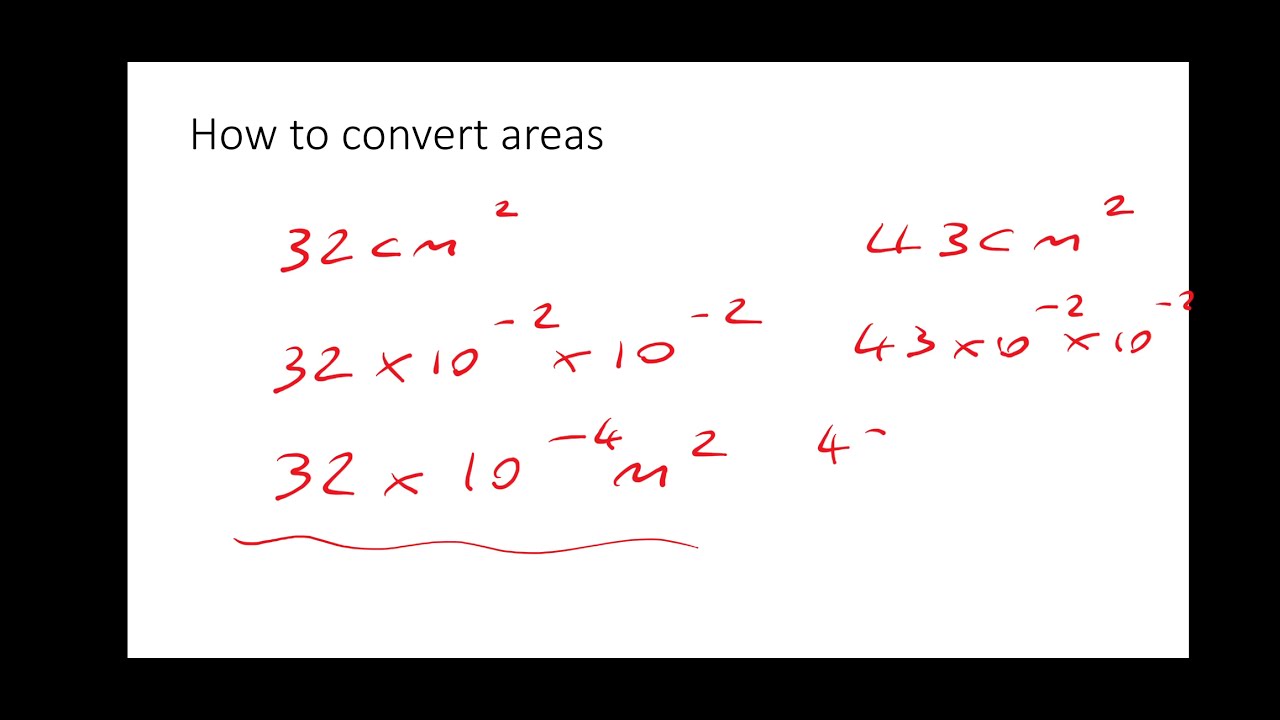 How to convert areas
32cm²
32 × 10⁻² × 10⁻²
32 × 10⁻⁴ m²
43cm²
43 × 10⁻² × 10⁻²
4